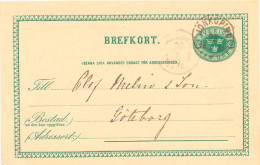 JÖNKÖPING
BREFKORT.
(DENNA SIDA ANVÄNDES ENDAST FÖR ADRESSERINGEN.)
Till Olof Melin & Son.
Bostad
Göteborg
Adressort: